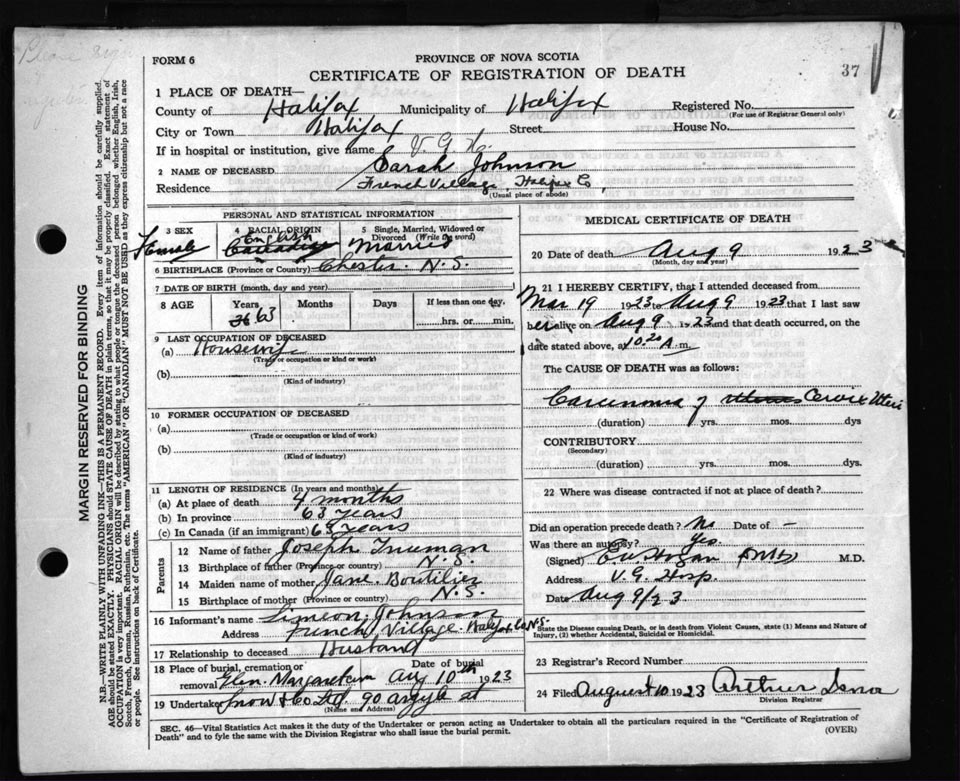 Please sign
FORM 6
PROVINCE OF NOVA SCOTIA
CERTIFICATE OF REGISTRATION OF DEATH
37
1 PLACE OF DEATH—
County of Halifax Municipality of Halifax Registered No.
(For use of Registrar General only)
City or Town Halifax Street House No.
If in hospital or institution, give name V. G. H.
2 NAME OF DECEASED Sarah Johnson
Residence French Village, Halifax Co
(Usual place of abode)
PERSONAL AND STATISTICAL INFORMATION
3 SEX 4 RACIAL ORIGIN 5 Single, Married, Widowed or Divorced (Write the word)
Female English Canadian Married
6 BIRTHPLACE (Province or Country) Chester N.S.
7 DATE OF BIRTH (month, day and year)
8 AGE Years Months Days If less than one day,
36 63 hrs. or min.
9 LAST OCCUPATION OF DECEASED
(a) Housewife
(Trade or occupation or kind of work)
(b)
(Kind of industry)
10 FORMER OCCUPATION OF DECEASED
(a)
(Trade or occupation or kind of work)
(b)
(Kind of industry)
11 LENGTH OF RESIDENCE (In years and months)
(a) At place of death 4 months
(b) In province 63 years
(c) In Canada (if an immigrant) 63 years
Parents
12 Name of father Joseph Truman
13 Birthplace of father (Province or country) N.S.
14 Maiden name of mother Jane Boutilier
15 Birthplace of mother (Province or country) N.S.
16 Informant's name Simeon Johnson
Address French Village Halifax Co N.S.
17 Relationship to deceased Husband
18 Place of burial, cremation or removal Glen Margaret Date of burial Aug 10th 1923
19 Undertaker Snow & Co Ltd. 90 Argyle St
(Name and Address)
MEDICAL CERTIFICATE OF DEATH
20 Date of death Aug 9 1923
(Month, day and year)
21 I HEREBY CERTIFY, that I attended deceased from
Mar 19 1923 to Aug 9 1923 that I last saw
her alive on Aug 9 1923 and that death occurred, on the
date stated above, at 10.20 A.m.
The CAUSE OF DEATH was as follows:
Carcinoma of Uterus Cervix Uteri
(duration) yrs. mos. dys
CONTRIBUTORY
(Secondary)
(duration) yrs. mos. dys.
22 Where was disease contracted if not at place of death?
Did an operation precede death? No Date of –
Was there an autopsy? Yes
(Signed) M.D.
Address V. G. Hosp.
Date Aug 9/23
State the Disease causing Death, or in death from Violent Causes, state (1) Means and Nature of
Injury, (2) whether Accidental, Suicidal or Homicidal.
23 Registrar's Record Number
24 Filed August 10 1923 Arthur
Division Registrar
SEC. 46—Vital Statistics Act makes it the duty of the Undertaker or person acting as Undertaker to obtain all the particulars required in the "Certificate of Registration of
Death" and to fyle the same with the Division Registrar who shall issue the burial permit. (OVER)
MARGIN RESERVED FOR BINDING
N.B.—WRITE PLAINLY WITH UNFADING INK—THIS IS A PERMANENT RECORD. Every item of information should be carefully supplied.
AGE should be stated EXACTLY. PHYSICIANS should STATE CAUSE OF DEATH in plain terms, so that it may be properly classified. Exact statement of
OCCUPATION is very important. RACIAL ORIGIN will be described by stating to what people or tongue the deceased person belonged whether English, Irish,
Scotch, French, German, Russian, Ruthenian, etc. The terms "AMERICAN" OR "CANADIAN" MUST NOT BE USED as they express citizenship but not a race
or people. See instructions on back of Certificate.